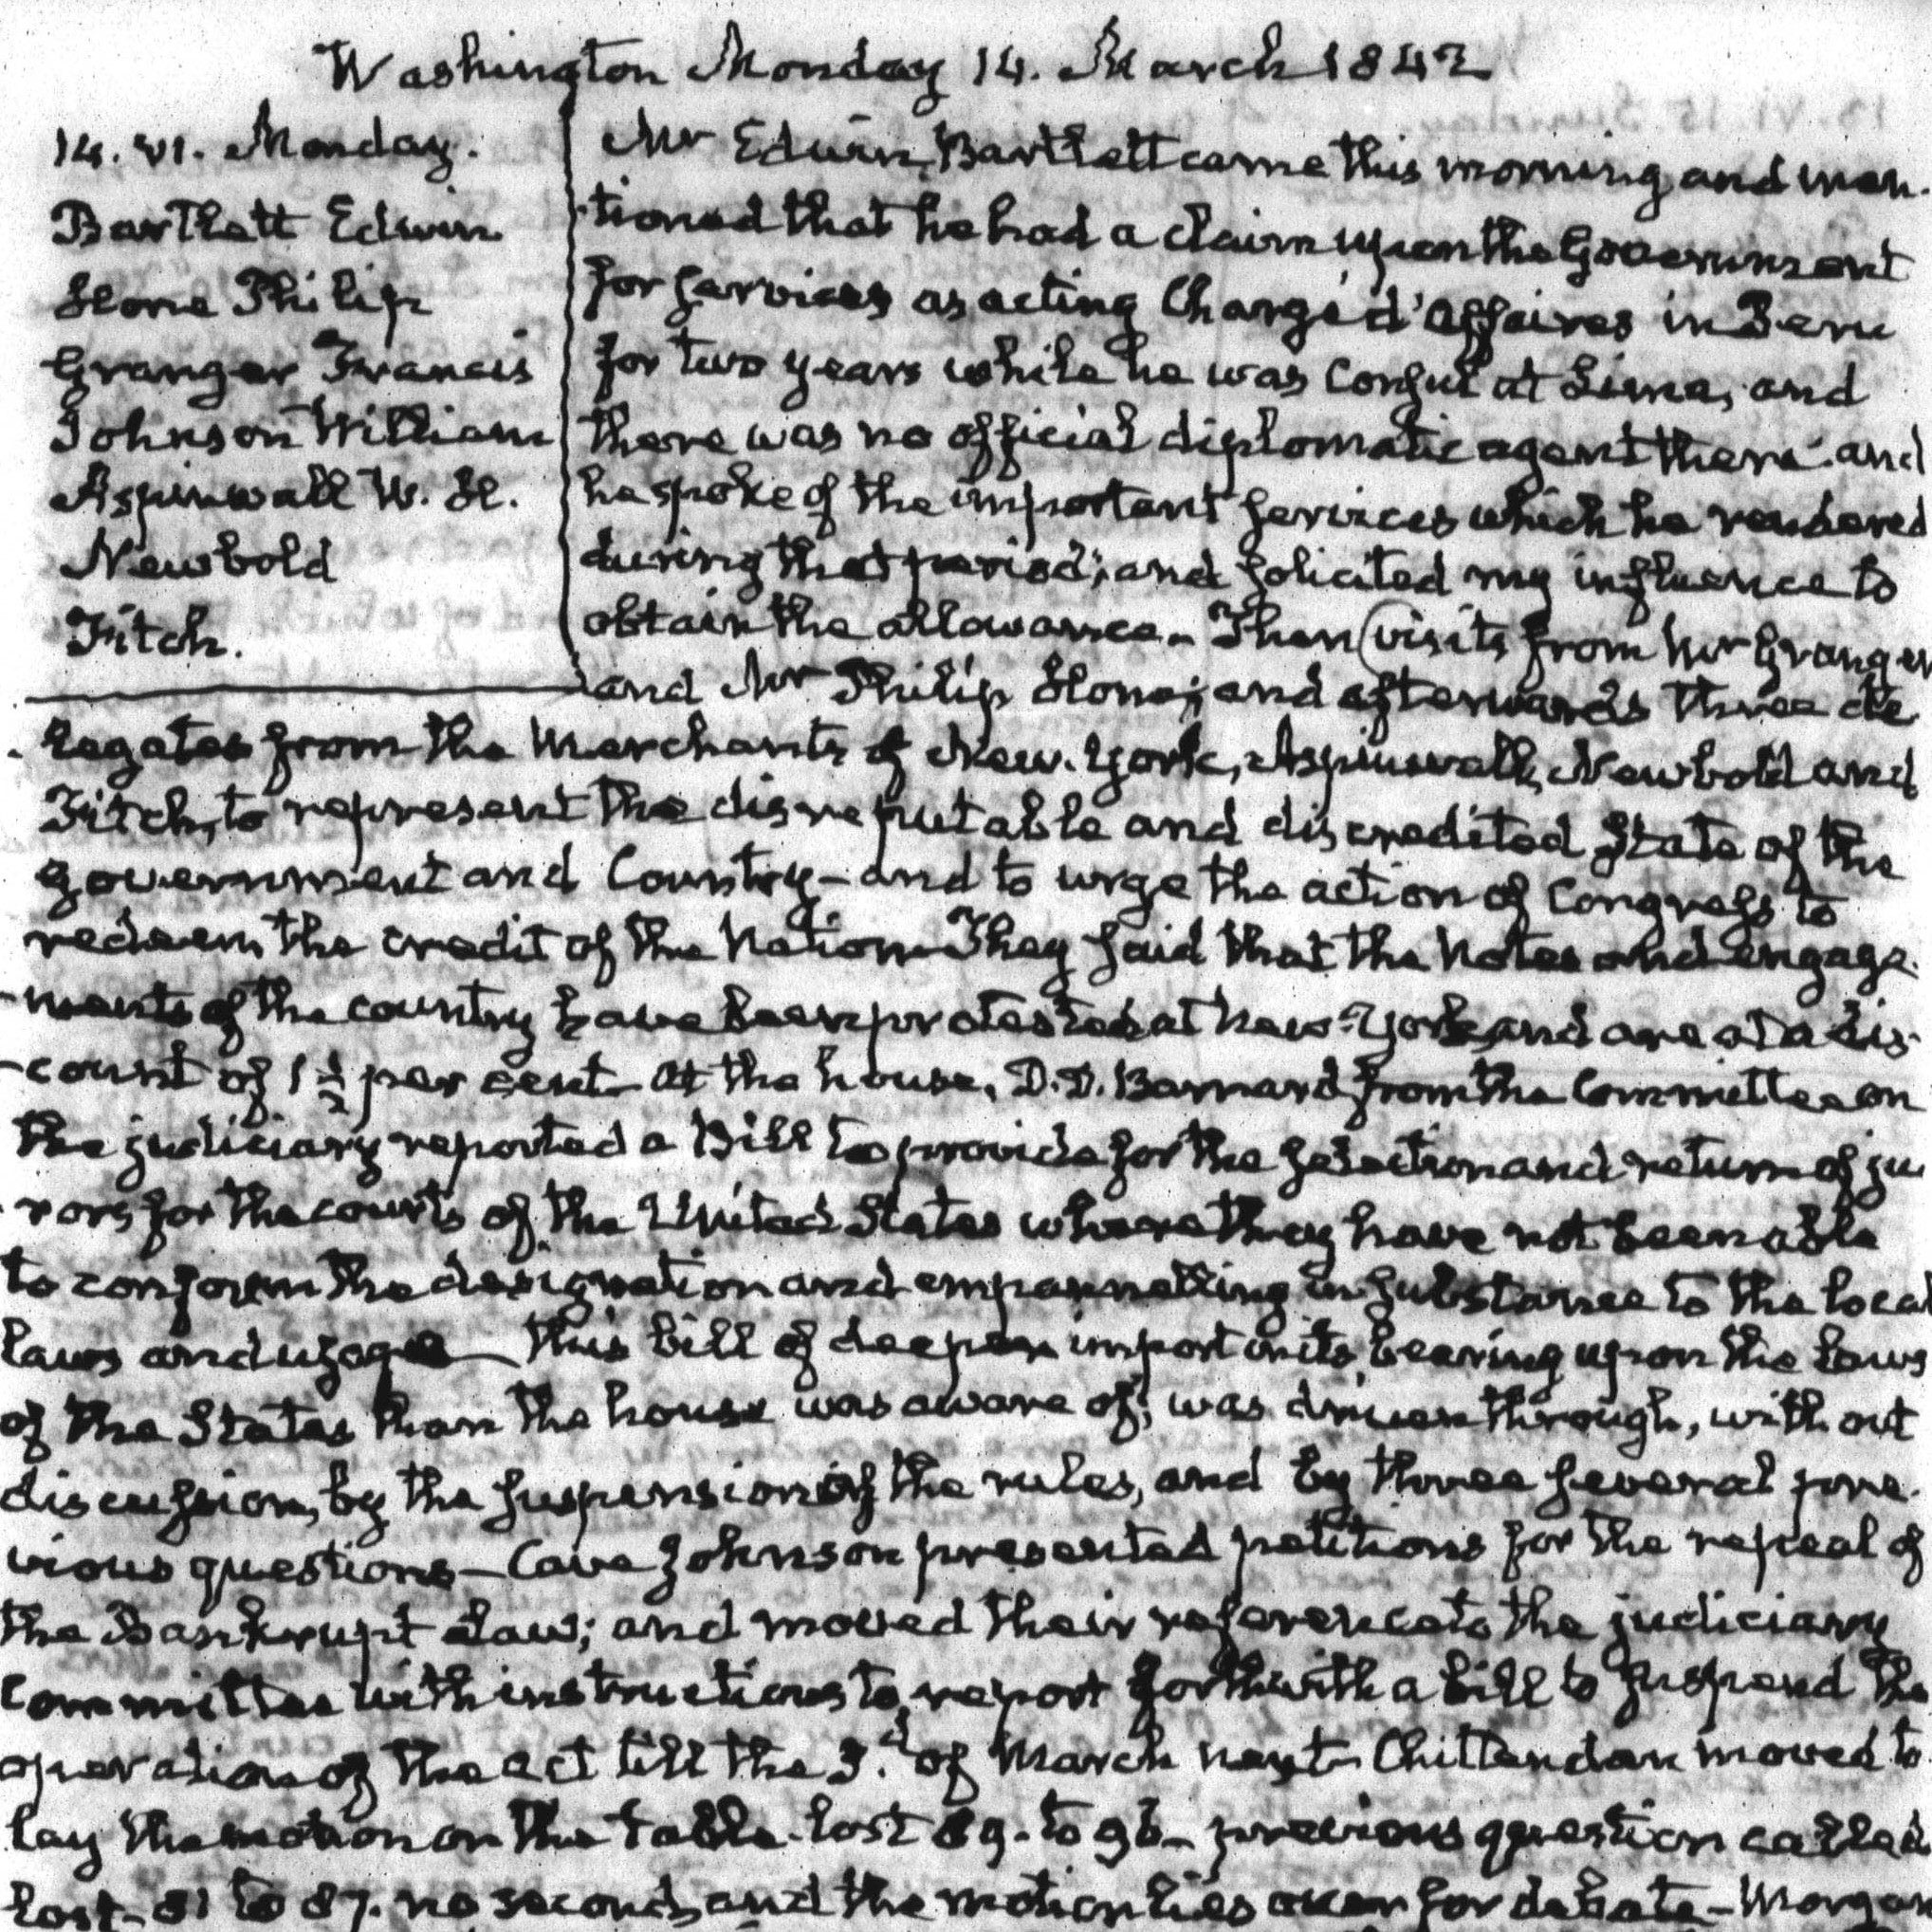 Washington Monday 14. March 1842
14. VI. Monday.
Bartlett Edwin
Hone Philip
Granger Francis
Johnson William
Aspinwall W. H.
Newbold
Fitch.
Mr Edwin Bartlett came this morning and men-
tioned that he had a claim upon the Government
for services as acting Chargé d'Affaires in Peru
for two years while he was Consul at Lima, and
there was no official diplomatic agent there. and
he spoke of the important services which he rendered
during that period; and solicited my influence to
obtain the allowance. Then visits from Mr Granger
and Mr Philip Hone; and afterwards three de
legates from the Merchants of New-York, Aspinwall, Newbold and
Fitch, to represent the disreputable and discredited State of the
government and Country- and to urge the action of Congress to
redeem the credit of the Nation- They said that the Notes and engage-
ments of the country have been protested at New-York, and are at a dis-
count of 1½ per cent- At the house, D. D. Barnard from the Committee on
the judiciary reported a Bill to provide for the selection and return of ju
rors for the courts of the United States where they have not been able
to conform the designation and empannelling in substance to the local
laws and usage- This bill of deeper import in its bearing upon the laws
of the States than the house was aware of, was driven through, without
discussion, by the suspension of the rules, and by three several pre-
vious questions- Cave Johnson presented petitions for the repeal of
the Bankrupt Law; and moved their reference to the judiciary
Committee with instructions to report forthwith a bill to suspend the
operation of the act till the 3.d of March next- Chittenden moved to
lay the motion on the table. lost 89. to 96- previous question called
lost- 81 to 87. no second, and the motion lies over for debate- Morgan